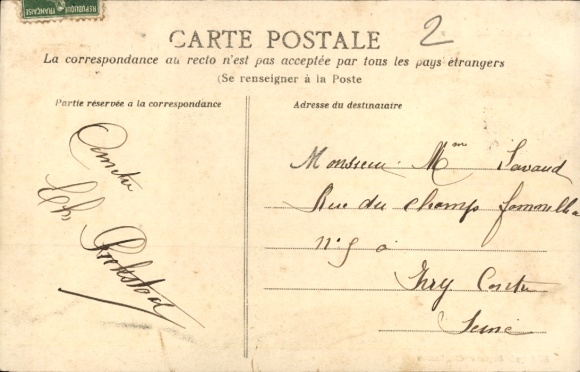 RÉPUBLIQUE FRANÇAISE
2
CARTE POSTALE
La correspondance au recto n'est pas acceptée par tous les pays étrangers
(Se renseigner à la Poste
Partie réservée à la correspondance
Adresse du destinataire
Monsieur Mme Savaud
Rue du Champs
n° 9 à
Ivry
Seine